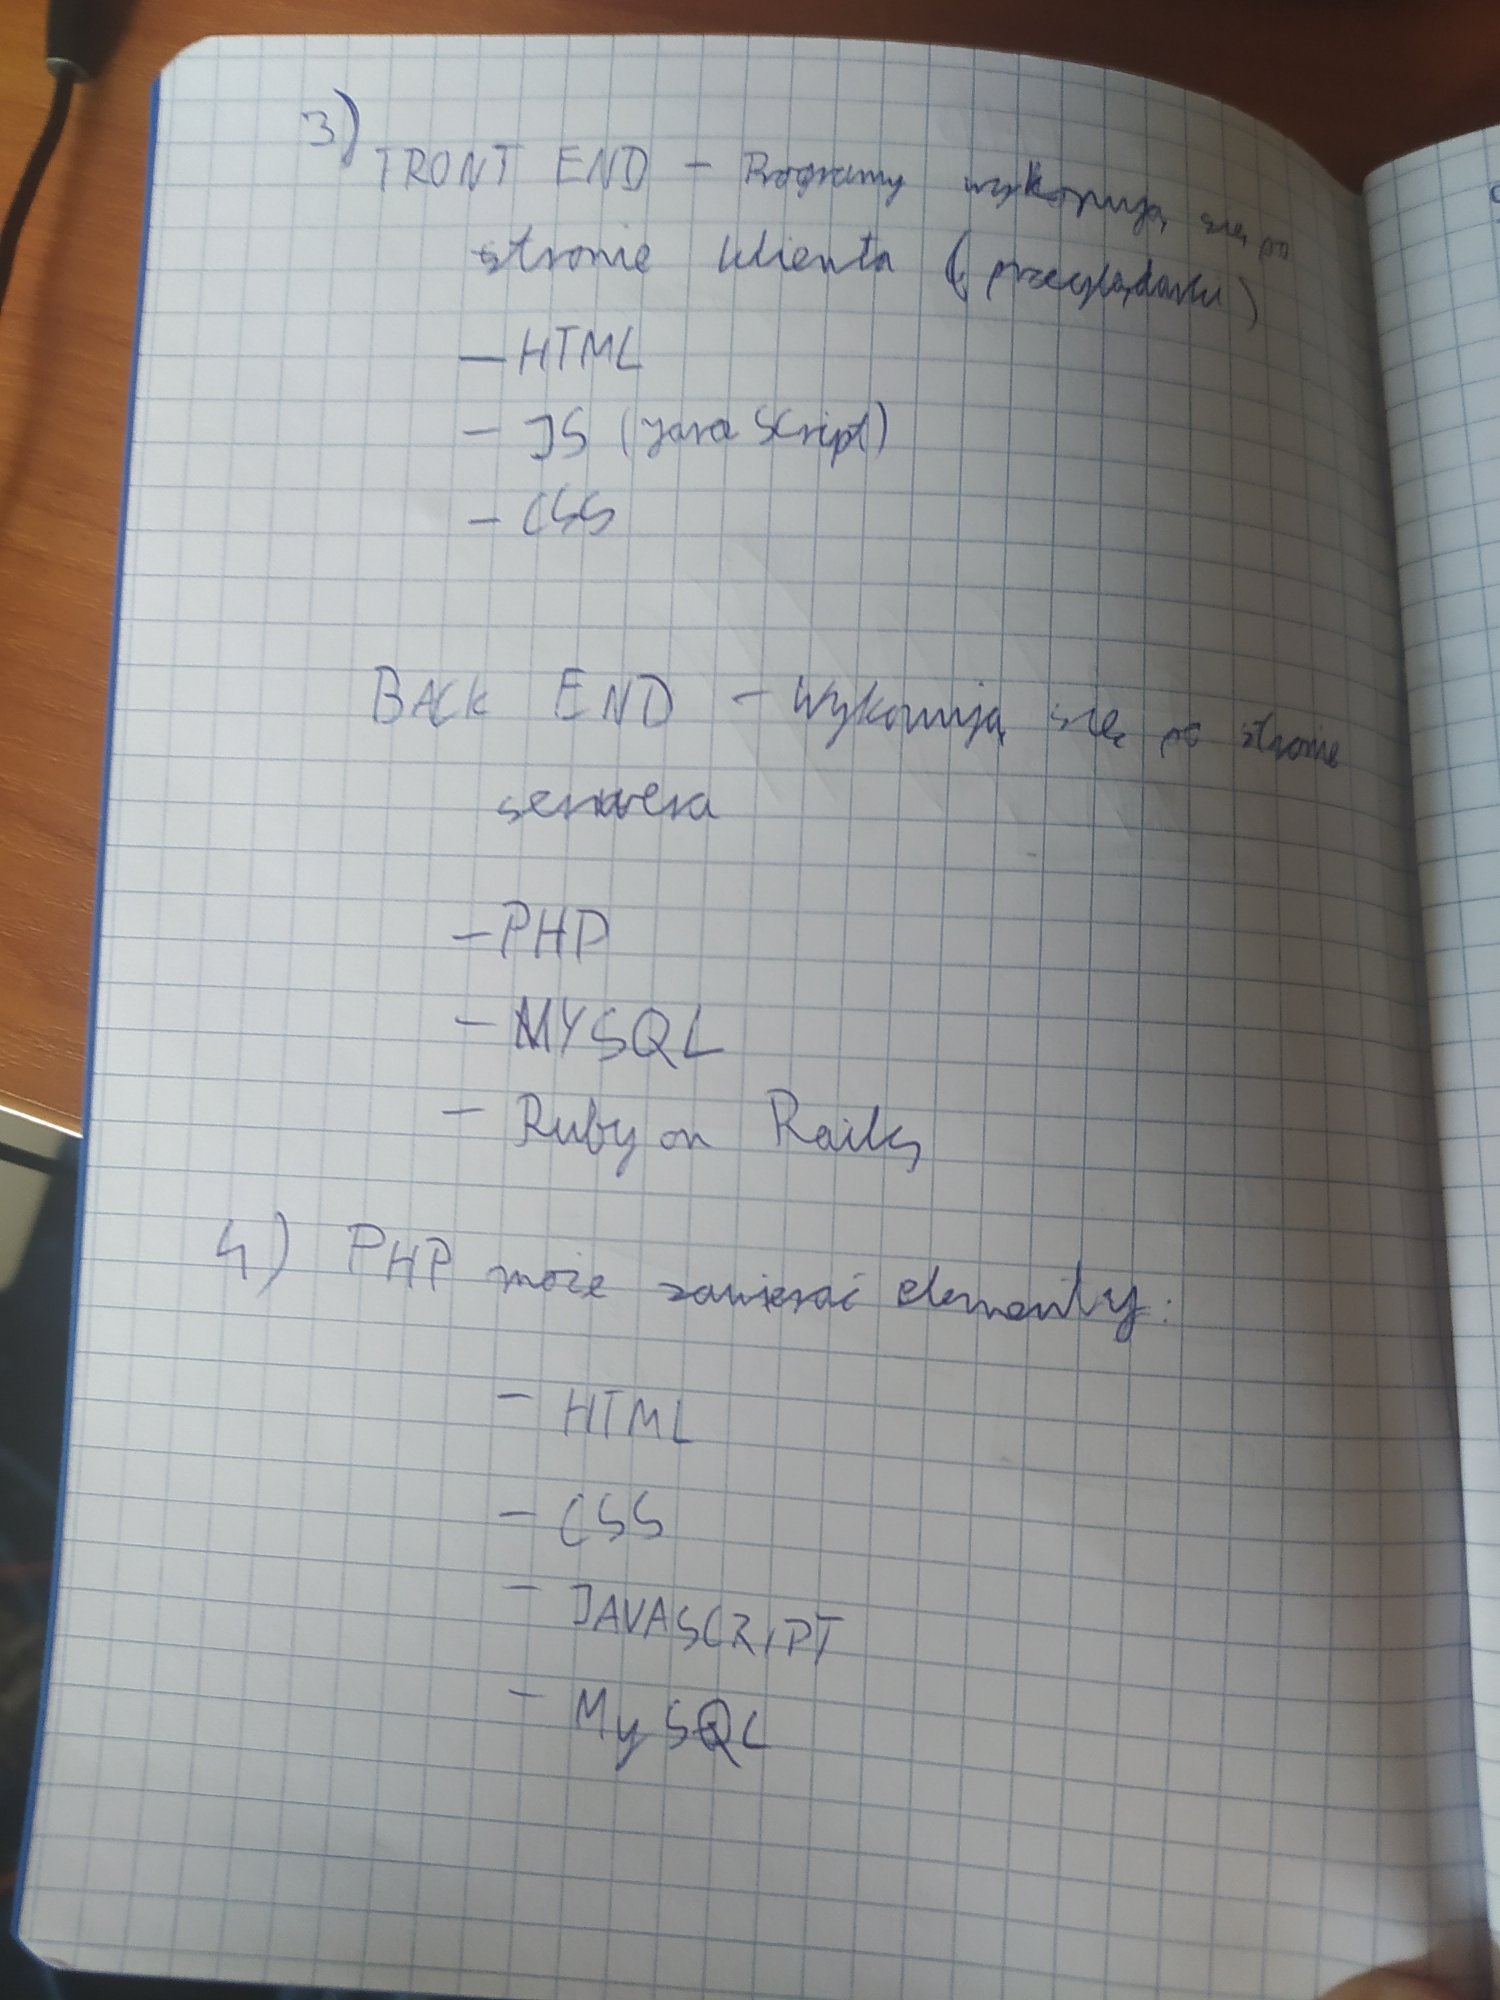 3)
FRONT END - Programy wykonują się po
stronie klienta (przeglądarki)
- HTML
- JS (javaScript)
- CSS
BACK END - wykonują się po stronie
serwera
- PHP
- MYSQL
- Ruby on Rails
4) PHP może zawierać elementy:
- HTML
- CSS
- JAVASCRIPT
- MySQL